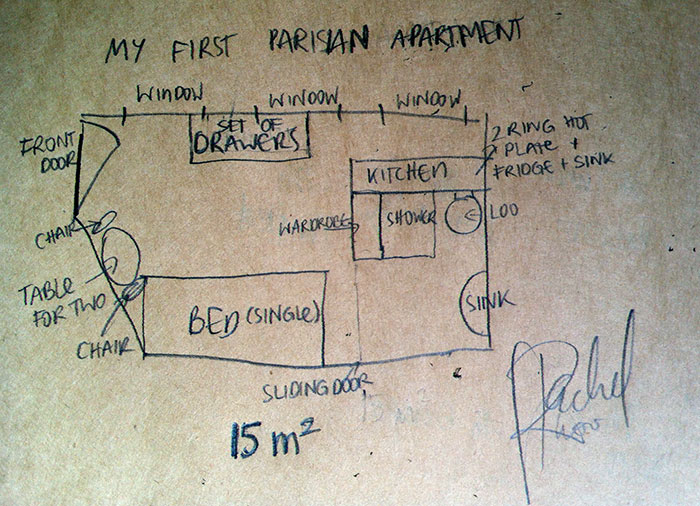 MY FIRST PARISIAN APARTMENT
WINDOW
WINDOW
WINDOW
FRONT
DOOR
SET OF
DRAWERS
2 RING HOT
PLATE +
FRIDGE + SINK
KITCHEN
WARDROBE
SHOWER
LOO
CHAIR
TABLE
FOR TWO
CHAIR
BED (SINGLE)
SINK
SLIDING DOOR
15 m²
Rachel